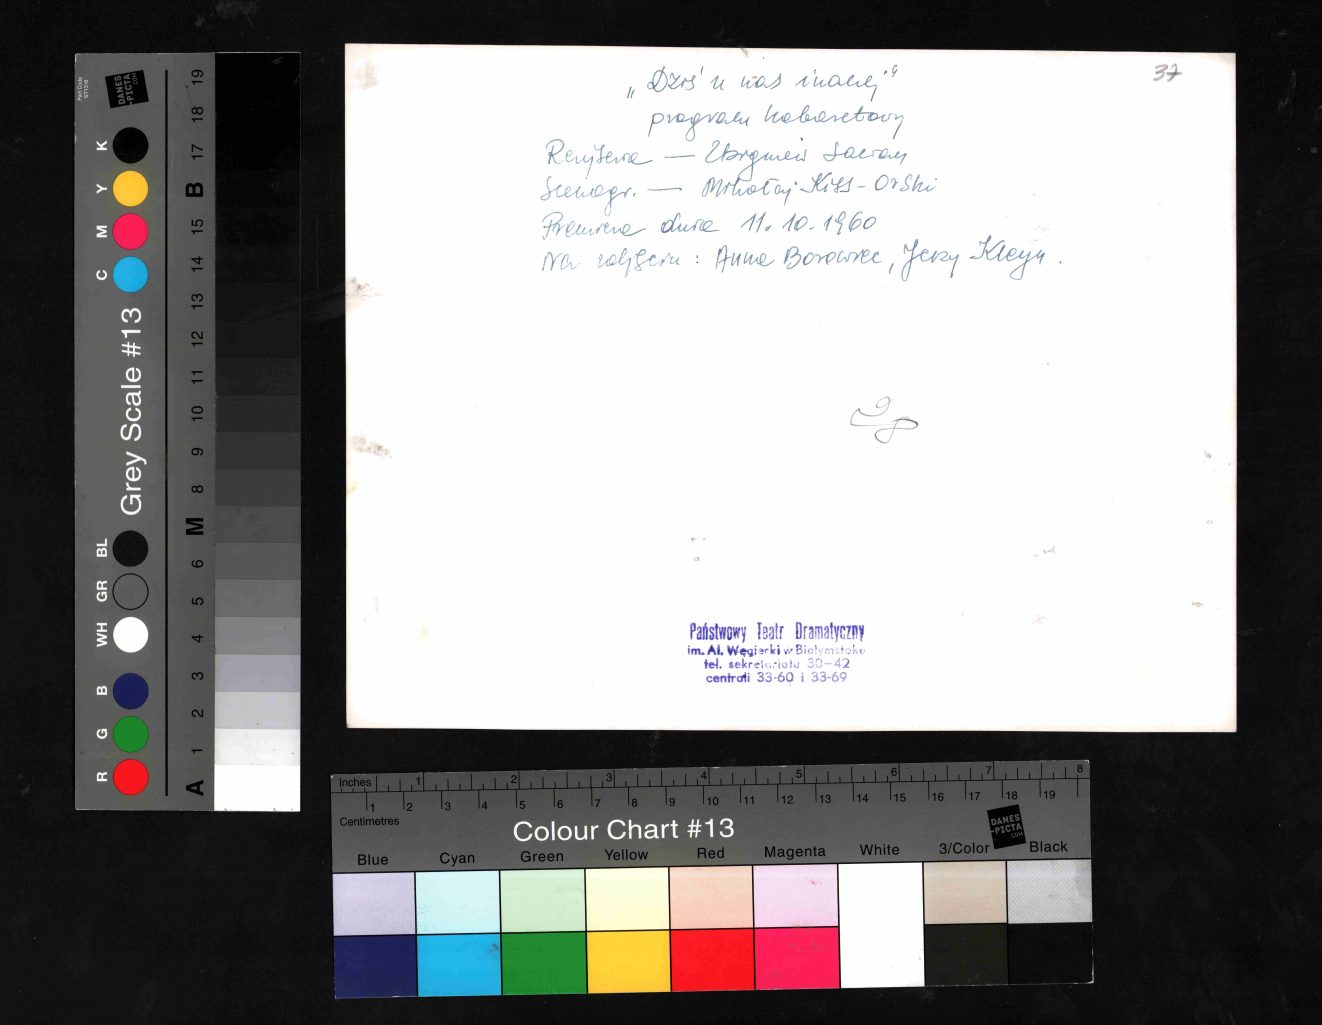 37
„Dziś u nas inaczej"
program kabaretowy
Reżyseria — Zbigniew
Scenogr. — Mikołaj Kiss-Orski
Premiera dnia 11.10.1960
Na zdjęciu : Anna Borowiec, Jerzy Kleyn.
Państwowy Teatr Dramatyczny
im. Al. Węgierki w Białymstoku
tel. sekretariatu 30-42
centrali 33-60 i 33-69
Part Code
ST1316
DANES
-PICTA
.COM
Grey Scale #13
R G B WH GR BL C M Y K
A 1 2 3 4 5 6 M 8 9 10 11 12 13 14 15 B 17 18 19
Inches 1 2 3 4 5 6 7 8
1 2 3 4 5 6 7 8 9 10 11 12 13 14 15 16 17 18 19
Centimetres
Colour Chart #13
DANES
-PICTA
.COM
Blue Cyan Green Yellow Red Magenta White 3/Color Black